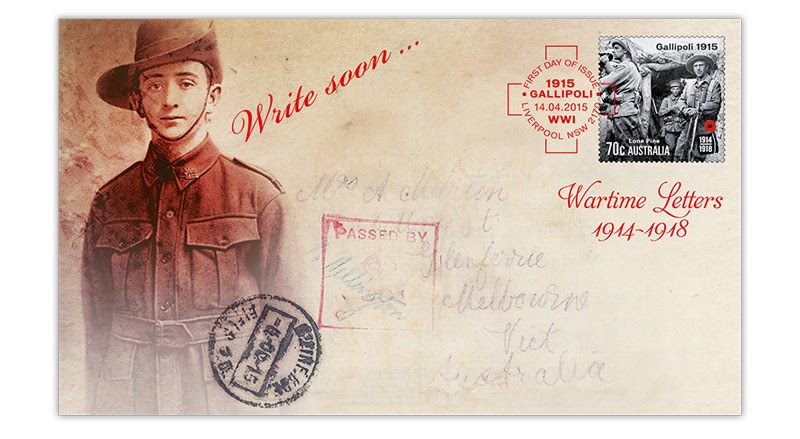 Write soon ...
FIRST DAY OF ISSUE
1915
• GALLIPOLI •
14.04.2015
WWI
LIVERPOOL NSW 2170
Gallipoli 1915
Lone Pine
70c AUSTRALIA
1914
1918
Wartime Letters
1914~1918
Mrs A
PASSED BY
Glenferrie
Melbourne
Vict
Australia
FIELD P.O.